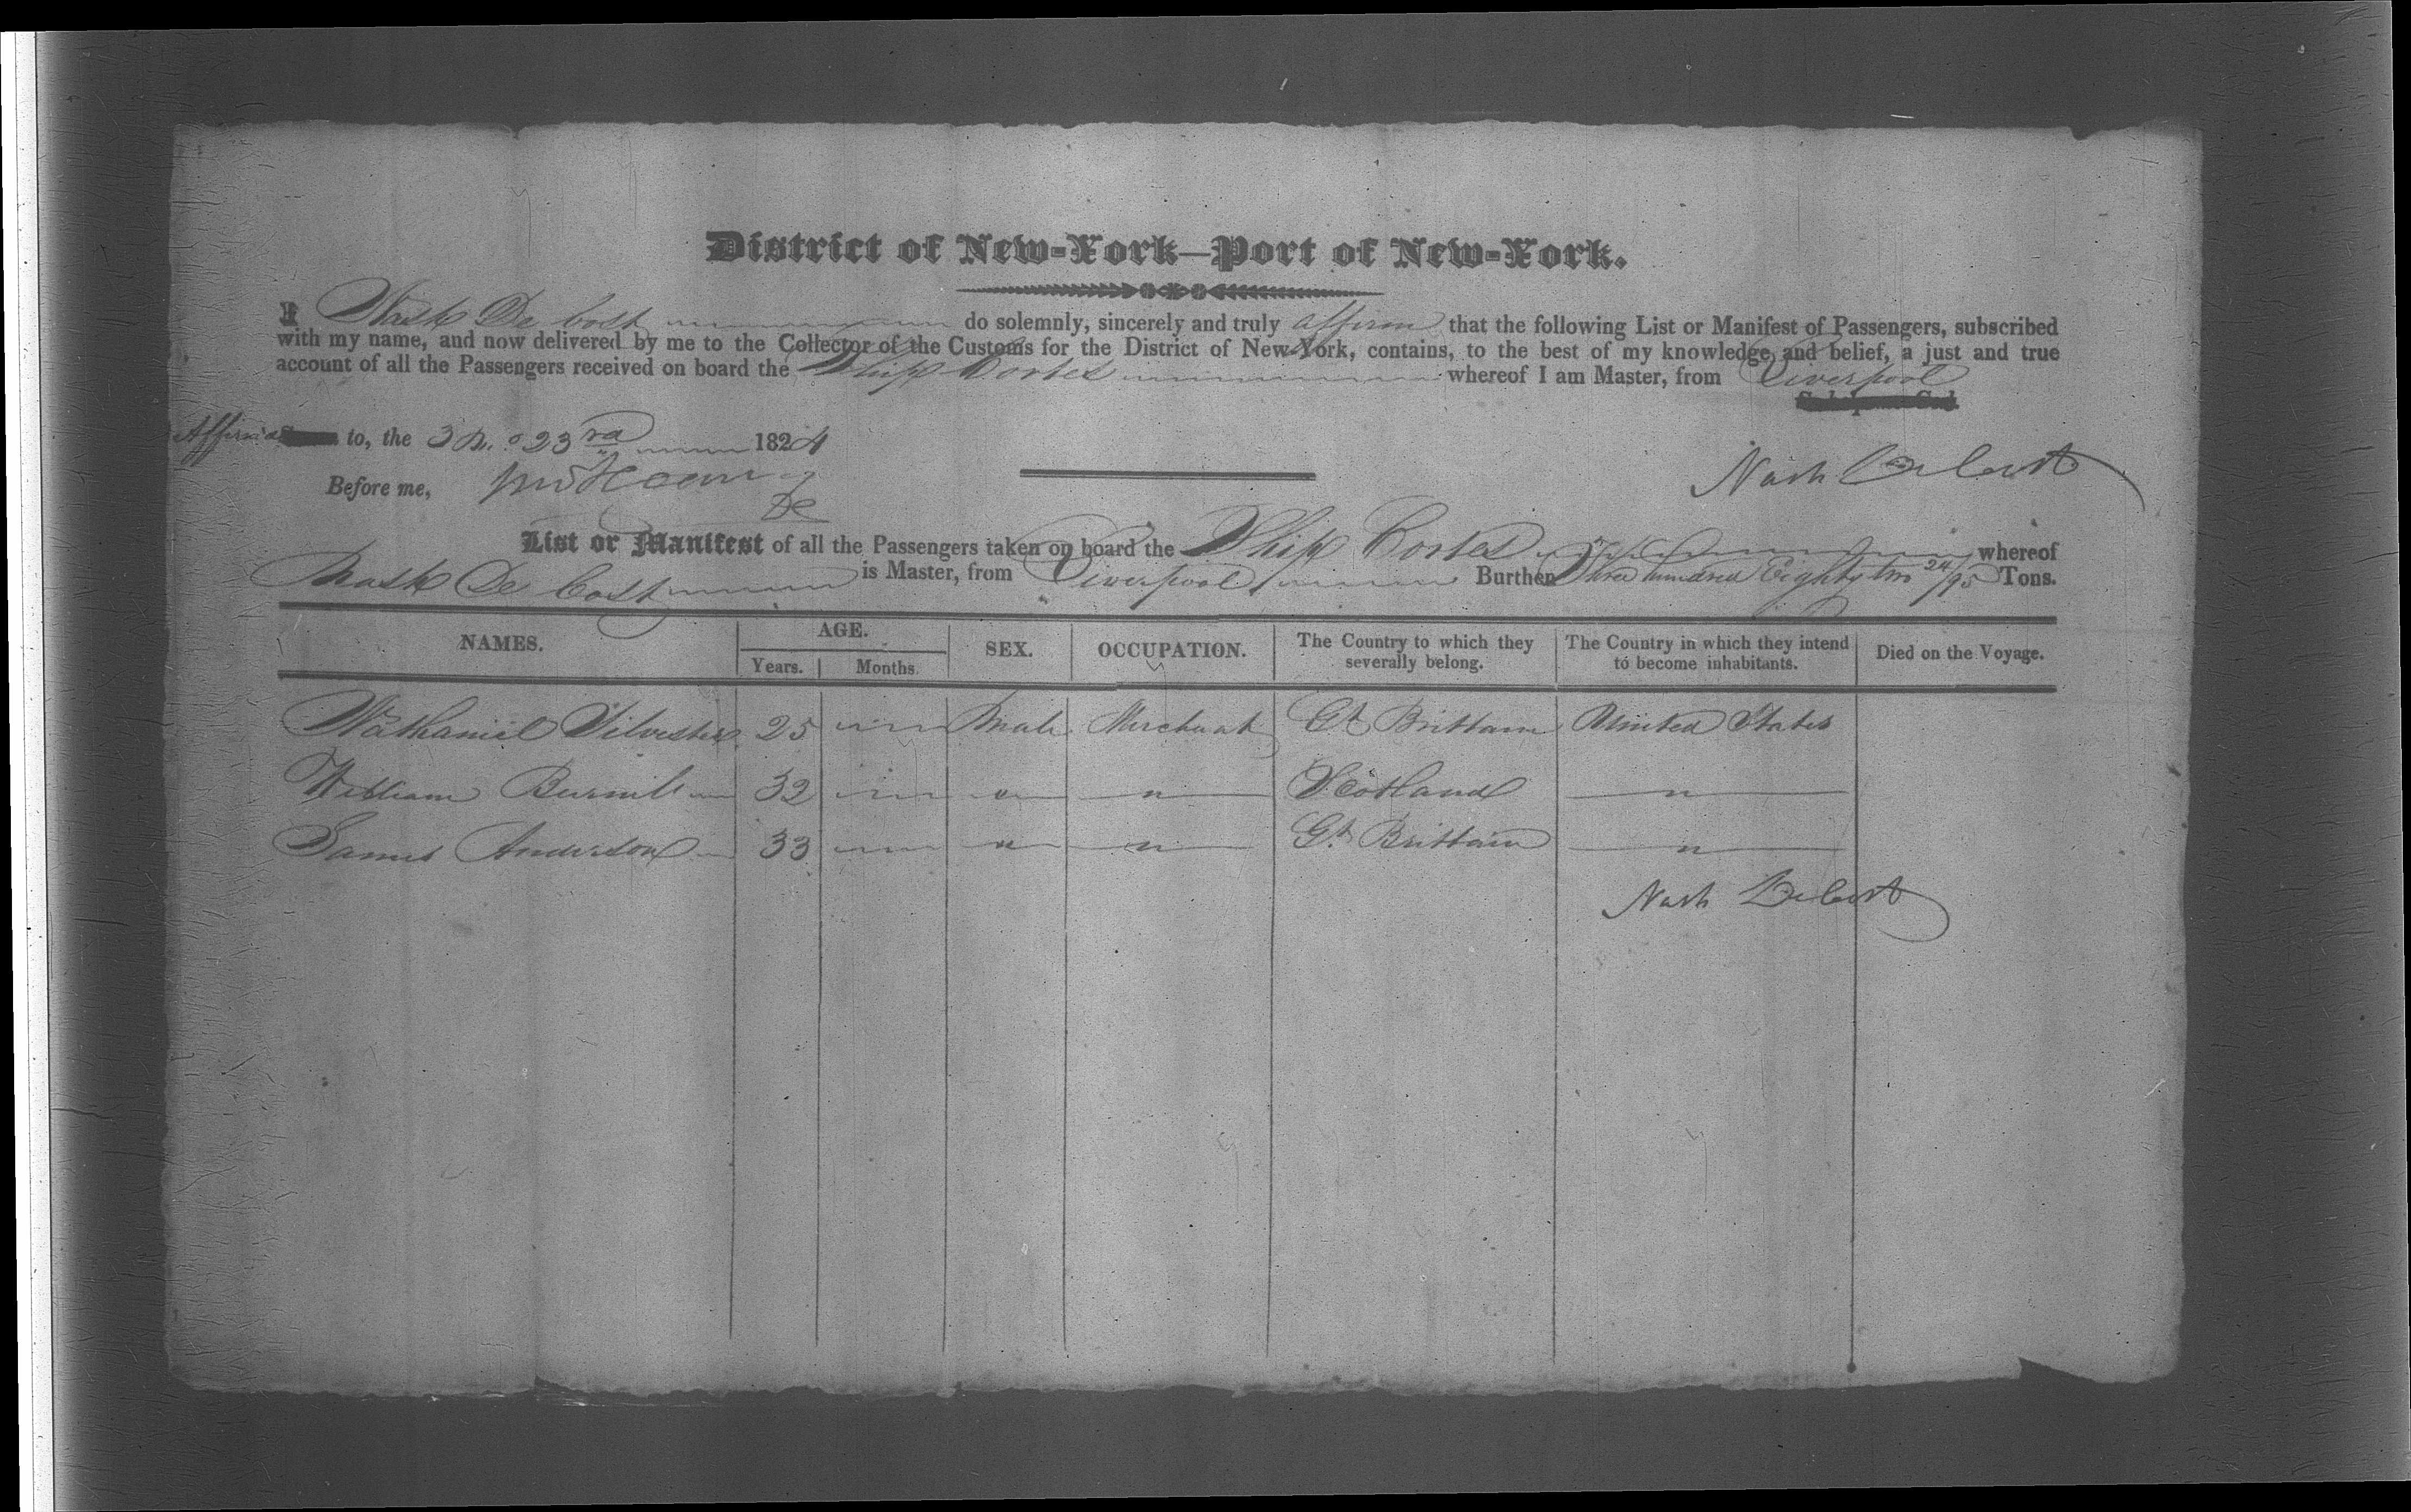 District of New-York—Port of New-York.
I Nash De Cost do solemnly, sincerely and truly affirm that the following List or Manifest of Passengers, subscribed
with my name, and now delivered by me to the Collector of the Customs for the District of New-York, contains, to the best of my knowledge and belief, a just and true
account of all the Passengers received on board the Ship Cortes whereof I am Master, from Liverpool
Affirmed to, the 3 Mo. 23rd 1824
Before me,
Nash DeCost
List or Manifest of all the Passengers taken on board the Ship Cortes whereof
Nash De Cost is Master, from Liverpool Burthen Three hundred Eighty two 24/95 Tons.
NAMES. AGE. SEX. OCCUPATION. The Country to which they severally belong. The Country in which they intend to become inhabitants. Died on the Voyage.
Years. Months.
Nathaniel Silvester 25 Male Merchant Gt Brittain United States
William 32 " " Scotland "
James Anderson 33 " " Gt. Brittain "
Nash DeCost